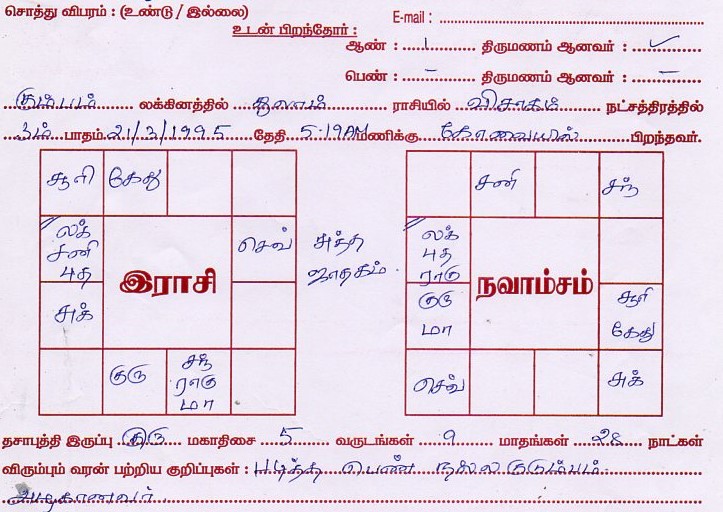 சொத்து விபரம் : (உண்டு / இல்லை)
E-mail :
உடன் பிறந்தோர் :
ஆண் : 1 திருமணம் ஆனவர் : ✓
பெண் : – திருமணம் ஆனவர் : –
கும்பம் லக்கினத்தில் துலாம் ராசியில் விசாகம் நட்சத்திரத்தில்
3ம் பாதம் 21/3/1995 தேதி 5-19AM மணிக்கு கோவையில் பிறந்தவர்.
சூரி கேது
லக் சனி புத
செவ்
சுக்
குரு
சந் ராகு மா
இராசி
சுத்த ஜாதகம்.
சனி
சந்
லக் புத ராகு
குரு மா
சூரி கேது
செவ்
சுக்
நவாம்சம்
தசாபுத்தி இருப்பு குரு மகாதிசை 5 வருடங்கள் 9 மாதங்கள் 28 நாட்கள்
விரும்பும் வரன் பற்றிய குறிப்புகள் : படித்த பெண் நல்ல குடும்பம்.
அழகானவர்.